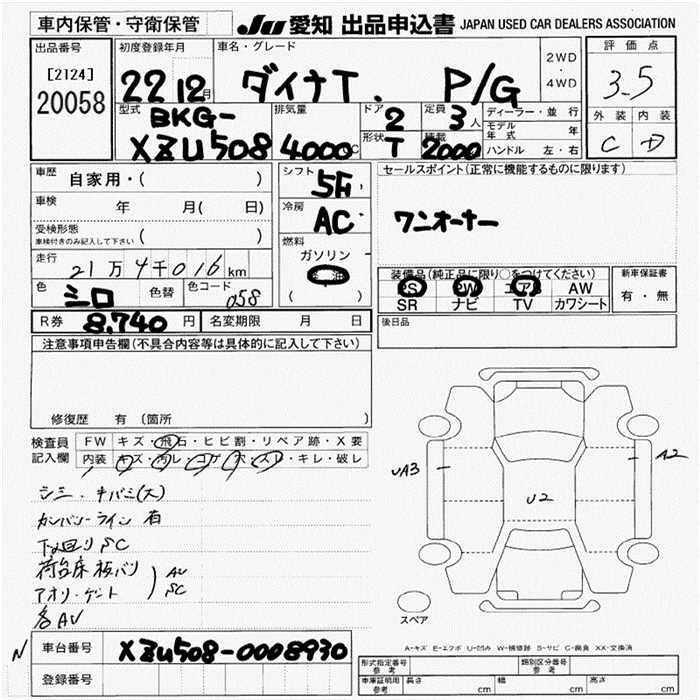 車内保管・守衛保管 JU 愛知 出品申込書 JAPAN USED CAR DEALERS ASSOCIATION
出品番号 初度登録年月 車名・グレード 2WD 4WD 評価点
[2124] 20058 22 12月 ダイナT. P/G 3.5
型式 BKG-XZU508 排気量 4000 C ドア 2 定員 3人 ディーラー・並行 外装 内装
形状 T 積載 2000 モデル年式 年 C D
ハンドル 左・右
車歴 自家用・( ) シフト 5F セールスポイント(正常に機能するものに限ります)
車検 年 月( 日) 冷房 AC ワンオーナー
受検形態 車検付きのみ記入して下さい ( ) 燃料 ガソリン
走行 21万4千016km 軽油 ( ) 装備品(純正品に限り○をつけてください) 新車保証書
色 シロ 色替 色コード 058 PS PW エアB AW 有・無
SR ナビ TV カワシート
R券 8,740円 名変期限 月 日 後日品
注意事項申告欄(不具合内容等は具体的に記入して下さい)
修復歴 有 (箇所
検査員記入欄 FW キズ・飛石・ヒビ割・リペア跡・X要
内装 キズ・ヨゴレ・コゲ・穴・スレ・キレ・破レ
シミ・キバミ(大)
カンバンライン有
下回りSC
荷台床板バリ
アオリ・ゲート ) AU SC
各AU
UA3 A2
U2
スペア
A-キズ E-エクボ U-凹み W-補修跡 S-サビ C-腐食 XX-交換済
N 車台番号 XZU508-0008930
登録番号
形式指定番号 参考 類別区分番号 参考
車庫証明用 参考 長さ cm 幅 cm 高さ cm